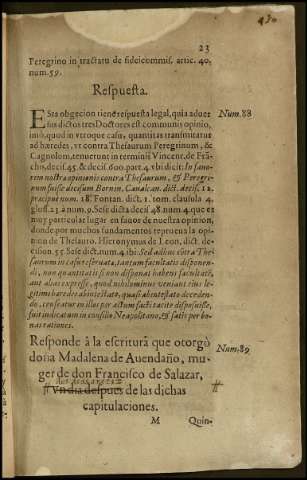 430
23
Peregrino in tractatu de fideicommis. artic. 40,
num. 59.
Respuesta.
Esta obgecion tiene respuesta legal, quia aduer
sus dictos tres Doctores est communis opinio,
imò, quod in vtroque casu, quantitas transmitatur
ad hæredes, vt contra Thesaurum Peregrinum, &
Cagnolom, tenuerunt in terminis Vincent. de Frã-
chis, decis. 45. & decis. 600. part. 4. vbi dicit: In fauo-
rem nostræ opinionis contra Thesaurum, & Peregri-
num fuisse decisum Bernin. Canalcan. dict. decis. 12.
præcipue num. 18. Fontan. dict. 1. tom. clausula 4.
gloss. 23. a num. 9. Sese dicta decis. 48. num. 4. que es
muy particular lugar en fauor de nuestra opinion,
donde por muchos fundamentos reprueua la opi-
nion de Thesauro. Hieronymus de Leon, dict. de-
cision. 55. Sese dict. num. 4. ibi: Sed adhuc cõtra The-
saurum in casu reseruata, tantum facultatis disponen-
di, non quantitatis si non disponat habens facultatē,
aut alias expresse, quod nihilominus veniant eius le-
gitimi hæredes abintestato, quasi abintestato deceden-
do, censeatur in illis per actum facitè tacitè disposuisse,
fuit indicatum in consilio Neapolitano, & satis per bo-
nas rationes.
Num. 88
Responde à la escritura que otorgò
doña Madalena de Auendaño, mu-
ger de don Francisco de Salazar,
Vn dia despues de las dichas
capitulaciones.
Num. 89
M
Quin-